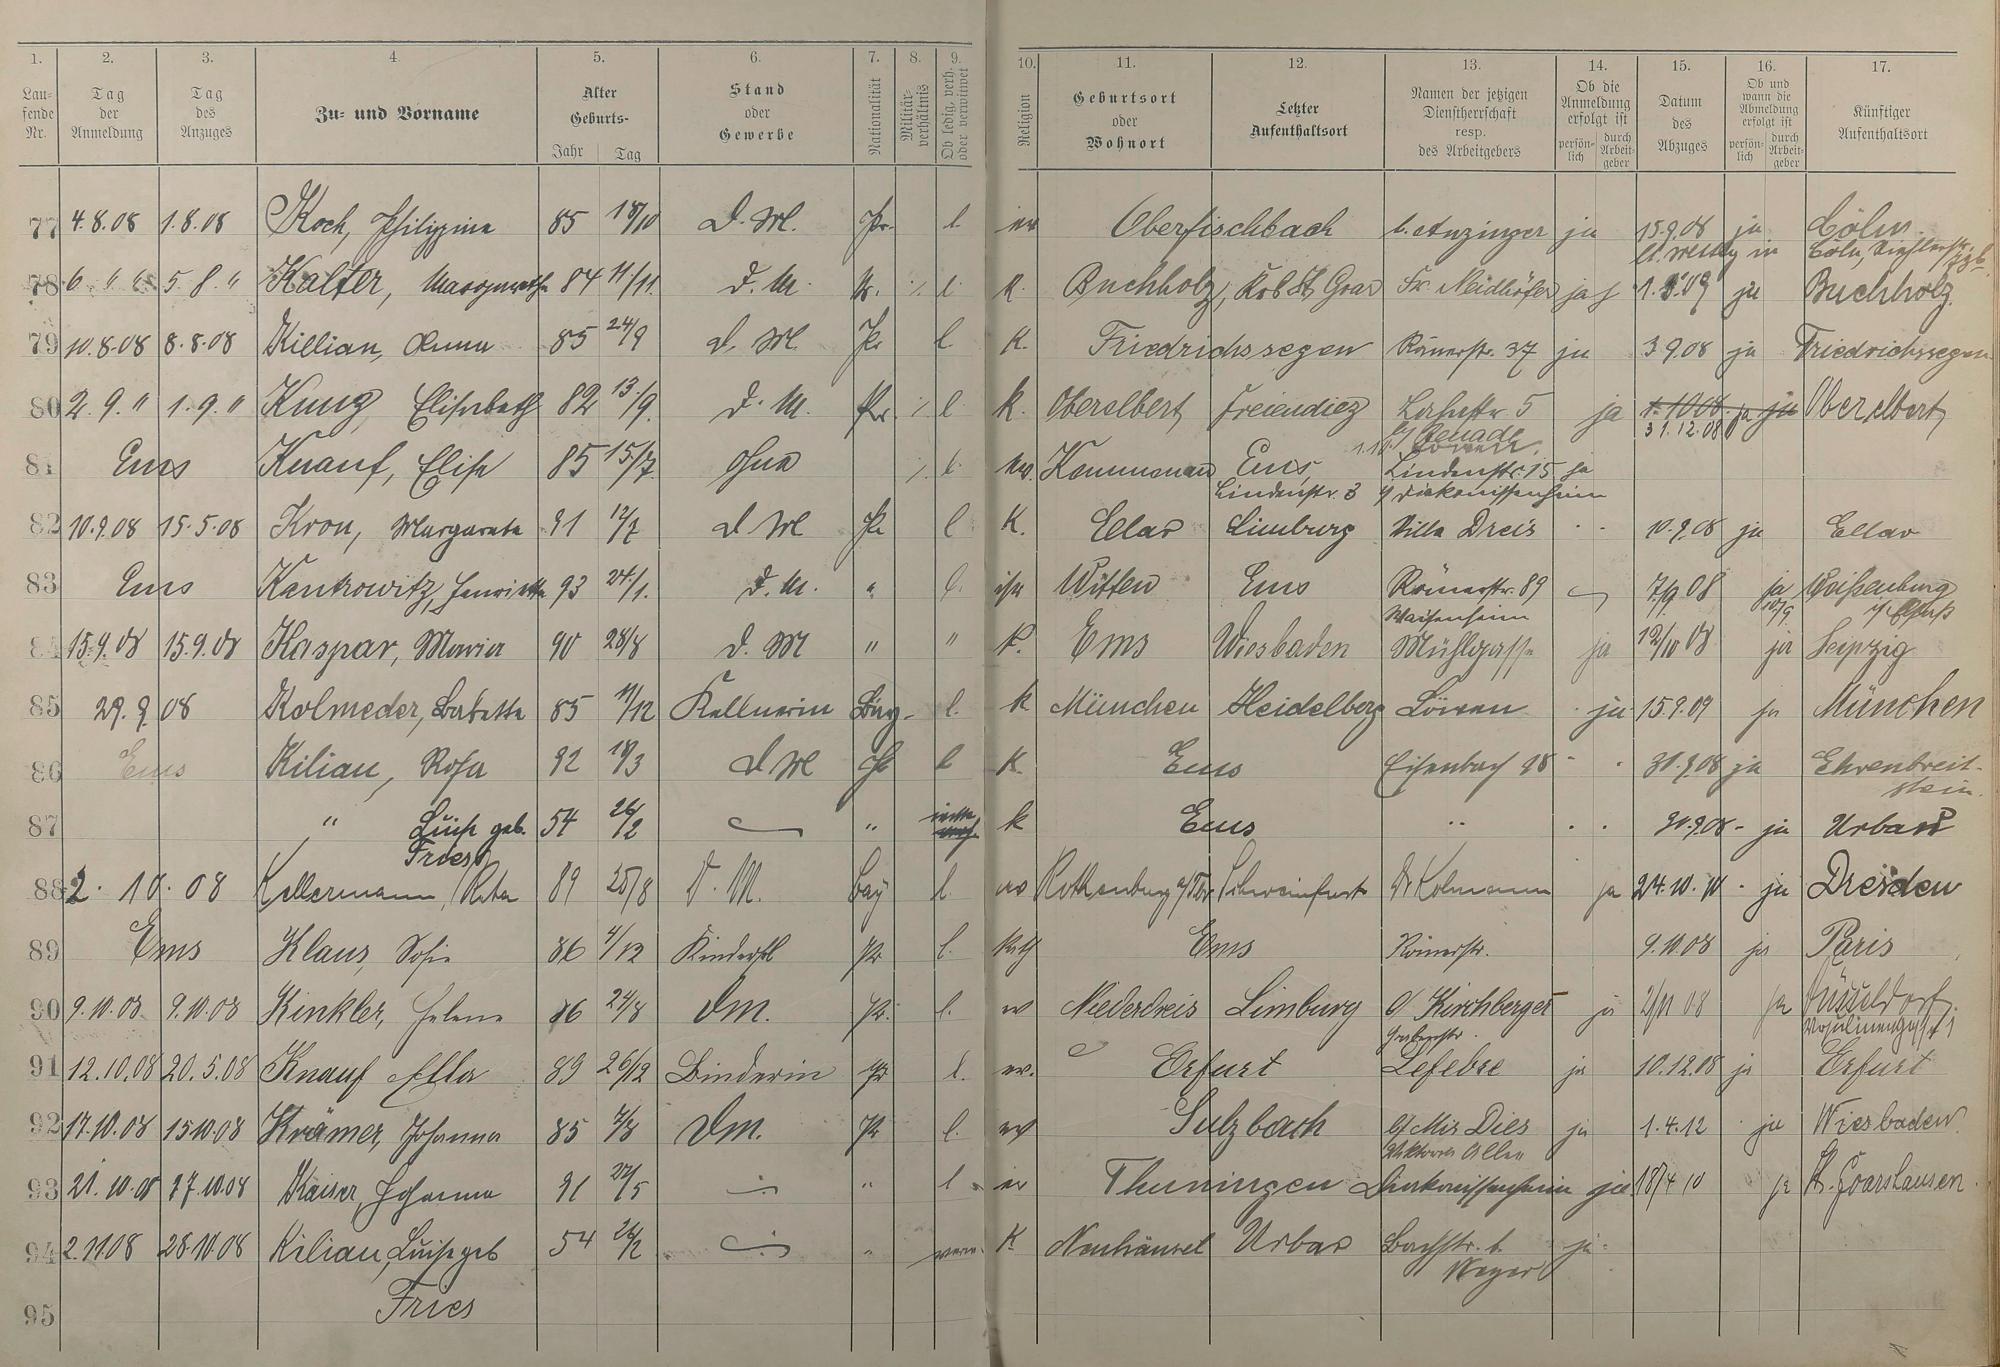 1. 2. 3. 4 5. 6. 7. 8. 9. 10. 11. 12. 13. 14. 15. 16. 17.
Lau-fende Nr. Tag der Anmeldung Tag des Anzuges Zu- und Vorname Alter Geburts- Jahr Tag Stand oder Gewerbe Nationalität Militär-verhältnis Ob ledig, verh. oder verwitwet Religion Geburtsort oder Wohnort Letzter Aufenthaltsort Namen der jetzigen Dienstherrschaft resp. des Arbeitgebers Ob die Anmeldung erfolgt ist persön-lich durch Arbeit-geber Datum des Abzuges Ob und wann die Abmeldung erfolgt ist persön-lich durch Arbeit-geber Künftiger Aufenthaltsort
77 4.8.08 1.8.08 Koch, Philippine 85 18/10 D. M. Pr. l. ev Oberfischbach b. Anzinger ja 15.9.08 ja Cöln
Cöln,
78 6. " " 5 8. " Kalter, Margarethe 84 11/11. D. M. Pr. /. l. K. Buchholz, Krb. St. Goar Fr. Neidhöfer ja 1. 09 ja Buchholz.
79 10.8.08 8.8.08 Killian, Anna 85 24/9 D. M. Pr l K. Friedrichssegen Römerstr. 37 ja 3 9.08 ja Friedrichssegen
80 2. 9. " 1. 9. " Kunz, Elisabeth 82 13./9. D. M. Pr. /. l. K. Oberelbert Freiendiez Lahnstr. 5 ja 1. 10 08. ja ja Oberelbert
31.12.08
Löwen.
81 Ems Knauf, Elise 85 15/7. ohne /. l. ev. Kemmenau Ems, Lindenstr. 15 ja
Lindenstr. 3 Diakonissenheim
82 10.9.08 15.5.08 Kron, Margareta 91 12/7 D M Pr l K. Ellar Limburg Villa Dreis " " 10.9.08 ja Ellar
83 Ems Kankowitz, Henriette 93 24./1. D. M. " l. isr Witten Ems Römerstr. 89 7./9 08 ja Weißenburg
10/9
Waisenheim
84 15.9.08 15.9.08 Kaspar, Maria 90 28/8 D. M " " K. Ems Wiesbaden Mühlgasse ja 12/10 08 ja Leipzig
85 29. 9. 08 Kolmeder, Babette 85 11/12 Kellnerin Bay. l. K München Heidelberg Löwen ja 15.9.09 ja München
86 Ems Kilian, Rosa 92 18/3 D M Pr l K. Ems Eisenbach 18 " " 31.9.08 ja Ehrenbreit-
stein.
87 " Luise geb. 54 26/2 " K Ems " " " 30.9.08 - ja Urbar
Fries
88 2. 10. 08 Kellermann, Reta 89 25/8 D. M. Bay l ev Rothenburg o/Tbr Schweinfurt Dr Kolmann ja 24.10.10 - ja Dresden
89 Ems Klaus, Sofie 86 4/12 Kinderfrl Pr l. Kath Ems Römerstr. 9.10.08 ja Paris
90 9.10.08 9.10.08 Kinkler, Helene 86 24/8 Dm. Pr. l. ev Niederdreis Limburg b/ Kirchberger ja 2/11 08 ja Düsseldorf,
Grabenstr.
91 12.10.08 20.5.08 Knauf Ella 89 26/12 Binderin Pr l. ev. Erfurt Lefebre ja 10.12.08 ja Erfurt
92 17.10.08 15.10.08 Krämer, Johanna 85 7/8 Dm. Pr l. ev Sulzbach b/ Mis Dies ja 1.4.12 ja Wiesbaden.
Viktoria Allee
93 21. 10. 08 17.10.08 Kaiser, Johanna 91 27/5 " l ev Thuningen Diakonissenheim ja 18/4 10 ja St. Goarshausen.
94 2.11.08 28.10.08 Kilian, Luise geb 54 26/2 " verw. K Neuhäusel Urbar Bachstr. b. ja
Fries Meyer
95